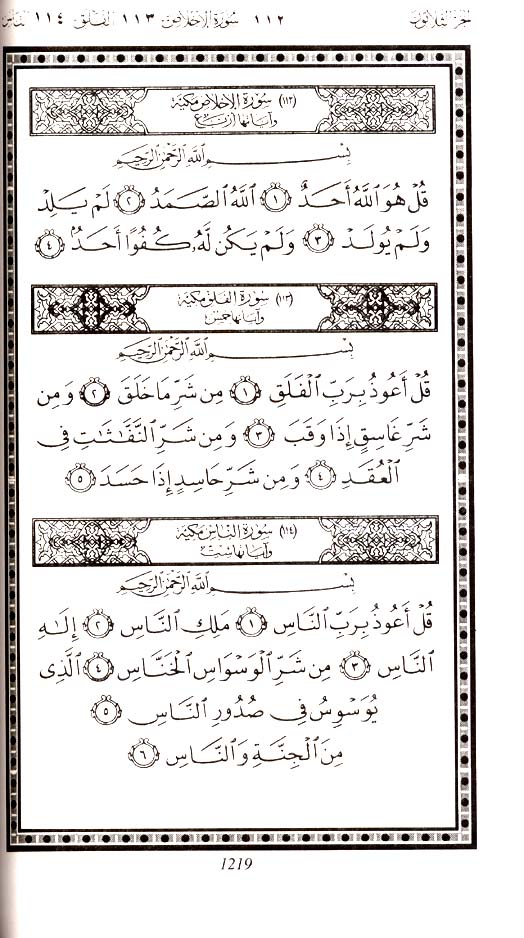 الجزء الثلاثون ١١٢ سورة الإخلاص ١١٣ الفلق ١١٤ الناس
(١١٢) سورة الإخلاص مكية
وآياتها أربع
بِسْمِ اللَّهِ الرَّحْمَٰنِ الرَّحِيمِ
قُلْ هُوَ ٱللَّهُ أَحَدٌ ١ ٱللَّهُ ٱلصَّمَدُ ٢ لَمْ يَلِدْ
وَلَمْ يُولَدْ ٣ وَلَمْ يَكُن لَّهُۥ كُفُوًا أَحَدٌۢ ٤
(١١٣) سورة الفلق مكية
وآياتها خمس
بِسْمِ اللَّهِ الرَّحْمَٰنِ الرَّحِيمِ
قُلْ أَعُوذُ بِرَبِّ ٱلْفَلَقِ ١ مِن شَرِّ مَا خَلَقَ ٢ وَمِن
شَرِّ غَاسِقٍ إِذَا وَقَبَ ٣ وَمِن شَرِّ ٱلنَّفَّٰثَٰتِ فِى
ٱلْعُقَدِ ٤ وَمِن شَرِّ حَاسِدٍ إِذَا حَسَدَ ٥
(١١٤) سورة الناس مكية
وآياتها ست
بِسْمِ اللَّهِ الرَّحْمَٰنِ الرَّحِيمِ
قُلْ أَعُوذُ بِرَبِّ ٱلنَّاسِ ١ مَلِكِ ٱلنَّاسِ ٢ إِلَٰهِ
ٱلنَّاسِ ٣ مِن شَرِّ ٱلْوَسْوَاسِ ٱلْخَنَّاسِ ٤ ٱلَّذِى
يُوَسْوِسُ فِى صُدُورِ ٱلنَّاسِ ٥
مِنَ ٱلْجِنَّةِ وَٱلنَّاسِ ٦
1219